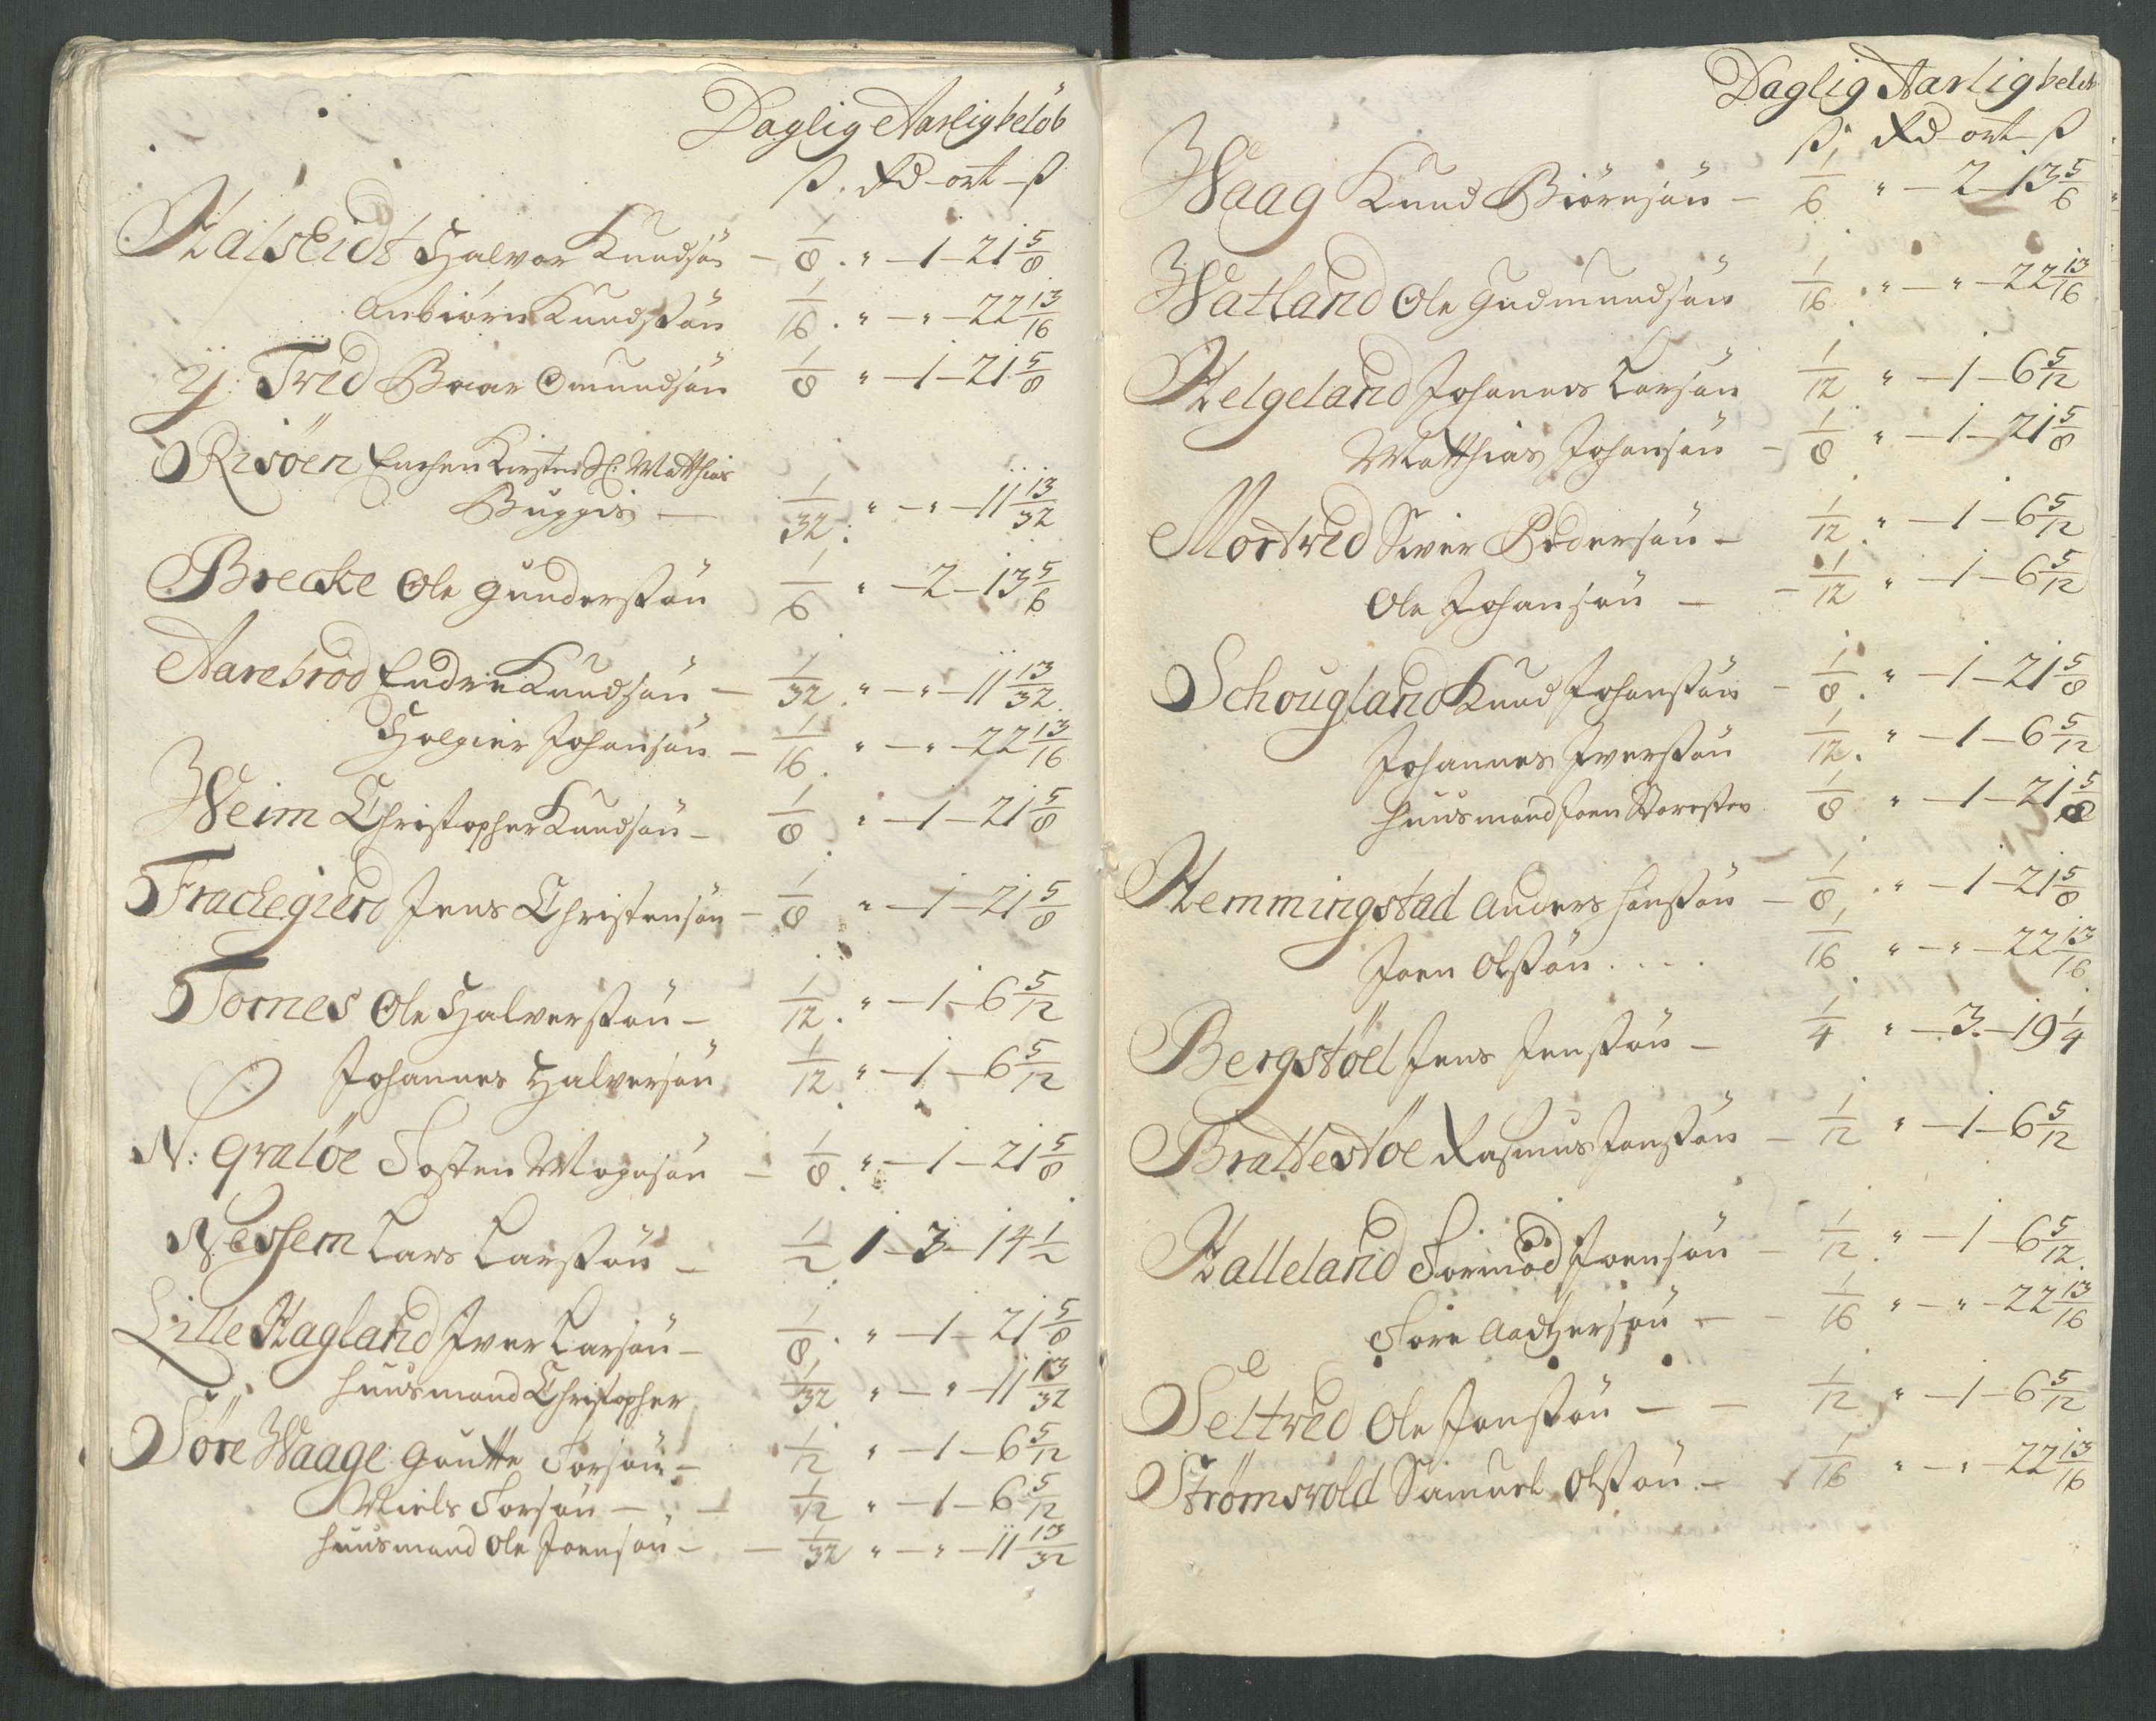 Daglig Aarlig beløb
ß. Rd - ort - ß
Halseidt Halvor Knudsøn - 1/8 . " - 1 - 21 5/8
Anbiørn Knudssøn 1/16 . " - " - 22 13/16
Y: Tvед Baar Omundsøn 1/8 " - 1 - 21 5/8
Risøen Enchen Kirsten Sl: Matthias
Bugges - 1/32 . " - " - 11 13/32
Brecke Ole Gunderssøn 1/6 " - 2 - 13 5/6
Aarebrod Endre Knudsøn - 1/32 . " - " - 11 13/32
Holgier Johansøn - 1/16 . " - " - 22 13/16
Weim Christopher Knudsøn - 1/8 " - 1 - 21 5/8
Frackegierd Jens Christensøn - 1/8 " - 1 - 21 5/8
Tornes Ole Halverssøn - 1/12 . " - 1 - 6 5/12
Johannes Halversøn 1/12 " - 1 - 6 5/12
N: Qvaløe Tosten Mognsøn - 1/8 . " - 1 - 21 5/8
Nessem Lars Larssøn - 1/2 1 - 3 - 14 1/2
Lille Hagland Iver Larsøn - 1/8 . " - 1 - 21 5/8
Huusmand Christopher 1/32 " - " - 11 13/32
Søre Waage Goutte Torsøn - 1/12 " - 1 - 6 5/12
Niels Torsøn - - 1/12 " - 1 - 6 5/12
Huusmand Ole Joensøn - - 1/32 " - " - 11 13/32
Daglig Aarlig beløb
ß. Rd - ort - ß
Waag Knud Biørnsøn - 1/6 " - 2 - 13 5/6
Watland Ole Gudmundsøn 1/16 . " - " - 22 13/16
Helgeland Johannes Larsøn 1/12 " - 1 - 6 5/12
Matthias Johansøn - 1/8 " - 1 - 21 5/8
Mortved Siver Pedersøn - 1/12 . " - 1 - 6 5/12
Ole Johansøn - - 1/12 " - 1 - 6 5/12
Schougland Knud Johanssøn - 1/8 . " - 1 - 21 5/8
Johannes Iverssøn 1/12 . " - 1 - 6 5/12
Huusmand Joen 1/8 " - 1 - 21 5/8
Hemmingstad Anders Hanssøn - 1/8 . " - 1 - 21 5/8
Joen Olssøn . . . . 1/16 " - " - 22 13/16
Bergstøel Jens Jenssøn - 1/4 " - 3 - 19 1/4
Brattestøe Rasmus Jonssøn - 1/12 " - 1 - 6 5/12
Halleland Tormod Joensøn - 1/12 . " - 1 - 6 5/12
Tore Aadtzersøn - - 1/16 " - " - 22 13/16
Seltved Ole Jonssøn - - 1/12 " - 1 - 6 5/12
Strømsvold Samuel Olssøn - 1/16 " - " - 22 13/16